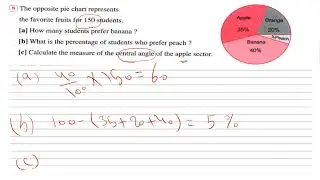 9 The opposite pie chart represents
the favorite fruits for 150 students.
[a] How many students prefer banana ?
[b] What is the percentage of students who prefer peach ?
[c] Calculate the measure of the central angle of the apple sector.
Apple
35%
Orange
20%
Banana
40%
(a) 40/100 × 150 = 60
(b) 100 - (35 + 20 + 40) = 5 %
(c)